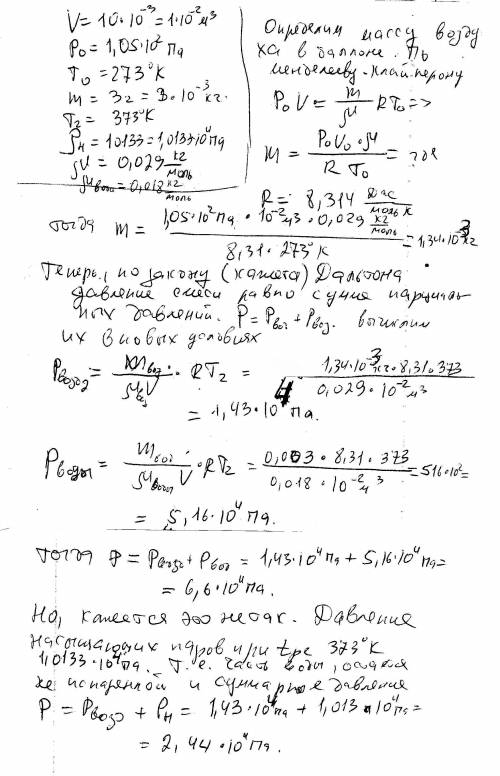 V = 10·10⁻³ = 1·10⁻² м³
P₀ = 1,05·10² Па
T₀ = 273°К
m = 3г = 3·10⁻³ кг.
T₂ = 373°К
Pн = 10133 = 1,0133·10⁴ Па
μ = 0,029 кг/моль
μ воды = 0,018 кг/моль
Определим массу возду
ха в баллоне. По
менделееву-Клайперону
P₀V = m/μ RT₀ =>
m = P₀V₀·μ / R T₀ =
R = 8,314 Дж/моль К
тогда m = 1,05·10² Па · 10⁻² м³ · 0,029 кг/моль / 8,31·273°К = 1,34·10⁻³ кг
Теперь, по закону (кажется) Дальтона
давление смеси равно сумме парциаль
ных давлений. P = Pвоз + Pвод. вычислим
их в новых условиях
Pвозд = mвоз/μвз V · RT₂ = 1,34·10⁻³ кг·8,31·373 / 0,029·10⁻² м³
= 1,43·10⁴ Па.
Pводы = mвод/μводы V · RT₂ = 0,003·8,31·373 / 0,018·10⁻² м³ = 516·10² =
= 5,16·10⁴ Па.
тогда P = Pвозд + Pвод = 1,43·10⁴ Па + 5,16·10⁴ Па =
= 6,6·10⁴ Па.
Но, кажется это не так. Давление
насыщающих паров при t-ре 373°К
1,0133·10⁴ Па. Т.е. часть воды, окажет
ся не испаренной и суммарное давление
P = Pвозд + Pн = 1,43·10⁴ Па + 1,013·10⁴ Па =
= 2,44·10⁴ Па.